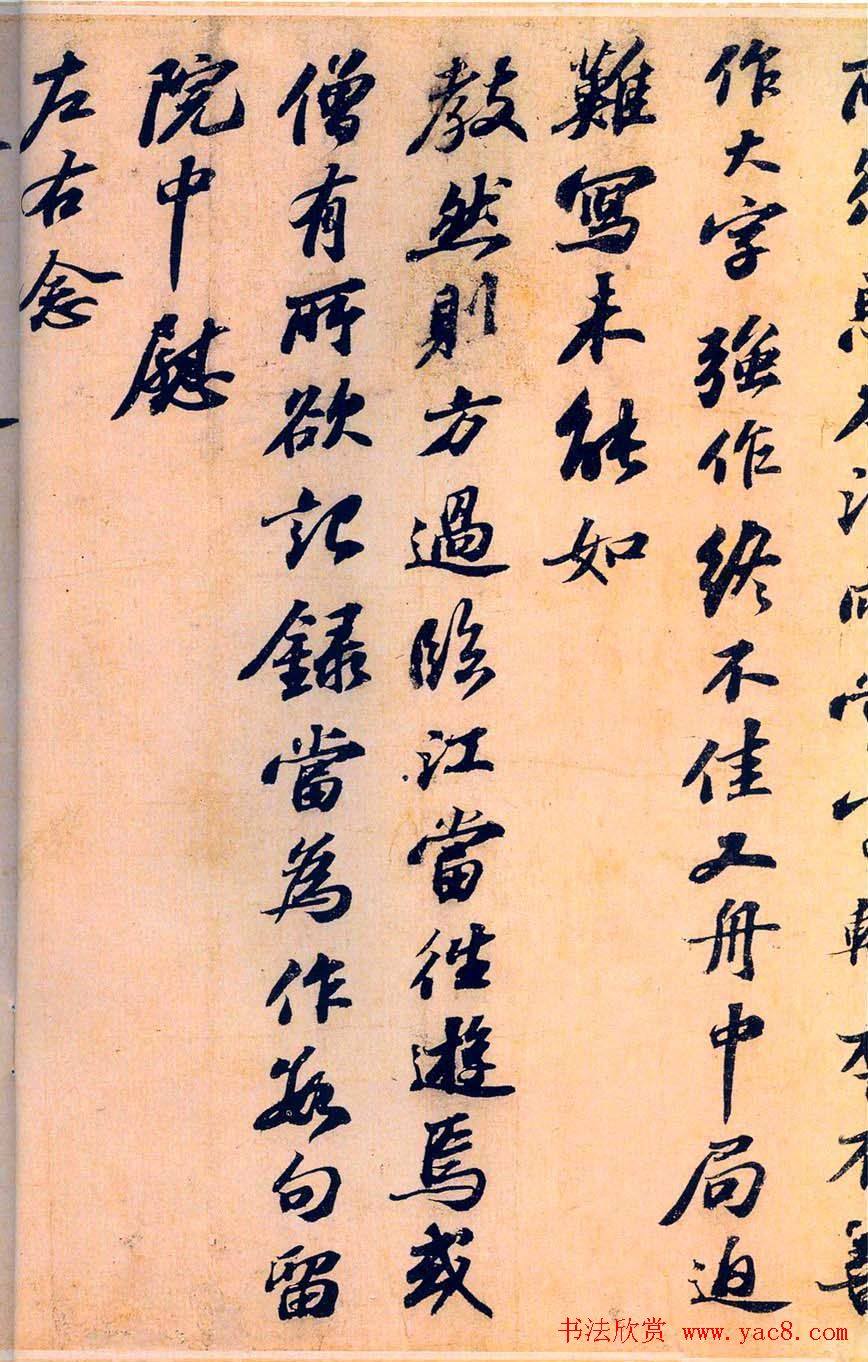 軾本不善
作大字強作終不佳又舟中局迫
難寫未能如
教然則方過臨江當往遊焉或
僧有所欲記錄當為作數句留
院中慰
左右念
书法欣赏 www.yac8.com